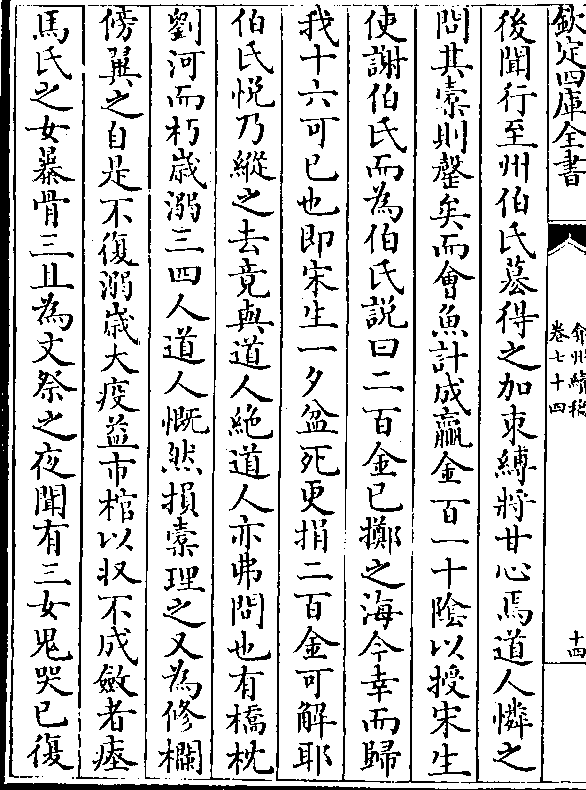 欽定四庫全書
弇州續稿
卷七十四
十四
後聞行至州伯氏墓得之加束縛將甘心焉道人憐之
問其橐則罄矣而會魚計成贏金百一十陰以授宋生
使謝伯氏而為伯氏說曰二百金已擲之海今幸而歸
我十六可已也即宋生一夕盆死更捐二百金可解耶
伯氏悅乃縱之去竟與道人絶道人亦弗問也有橋枕
劉河而朽歲溺三四人道人慨然損橐理之又為修欄
傍翼之自是不復溺歲大疫益市棺以収不成斂者瘞
馬氏之女暴骨三且為文祭之夜聞有三女鬼哭已復